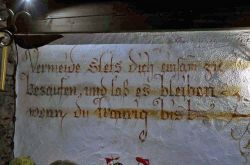 Vermeide stets dich einsam zu
besaufen, und laß es bleiben
wenn du traurig bist